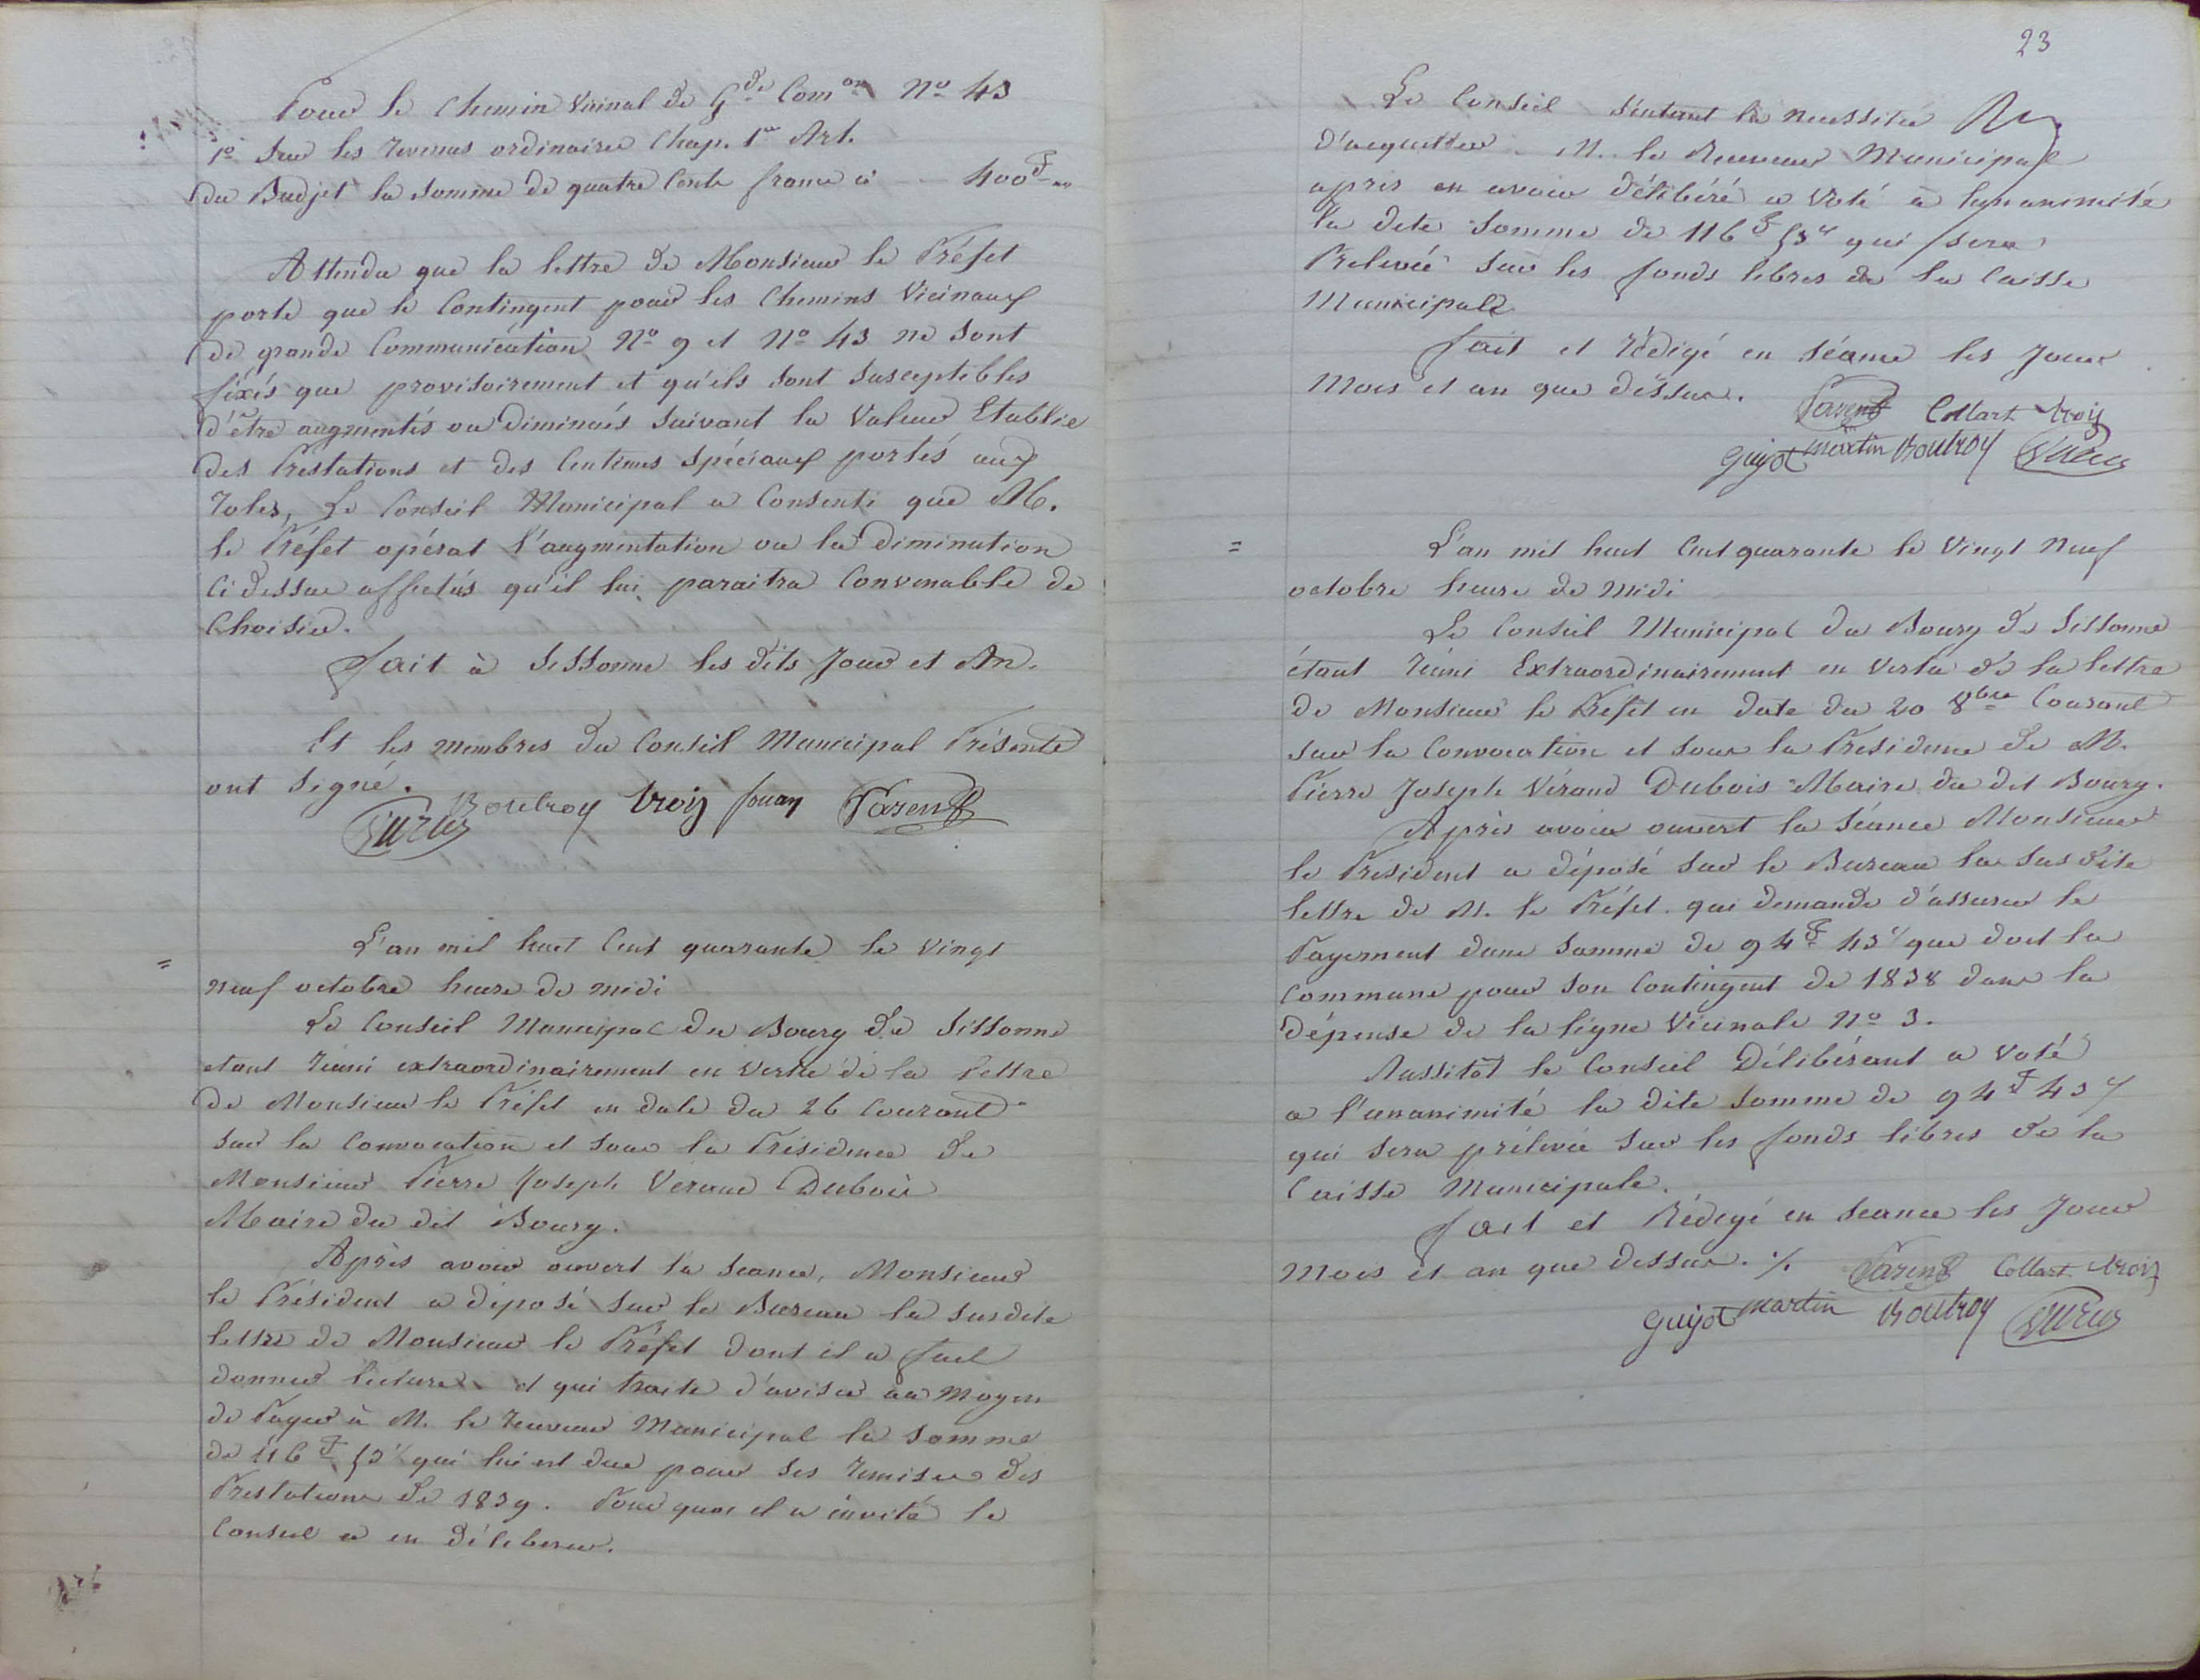 Pour le Chemin Vicinal de Gde Comon No 43
1o Sur les revenus ordinaires Chap. 1er Art.
du Budjet la somme de quatre Cents francs ci - 400 F
Attendu que la lettre de Monsieur le Préfet
porte que le Contingent pour les Chemins Vicinaux
de grande Communication No 9 et No 43 ne sont
fixés que provisoirement et qu'ils sont susceptibles
d'être augmentés ou diminués suivant la Valeur Etablie
des Prestations et des Centimes Spéciaux portés aux
roles, Le Conseil Municipal a Consenti que M.
le Préfet opérat l'augmentation ou la diminution
Ci dessus affectés qu'il lui paraitra Convenable de
Choisir.
fait à Sissonne les dits Jour et An.
Et les membres du Conseil Municipal Présents
ont Signé.
Boutroy troij Parent
= L'an mil huit Cent quarante le vingt
neuf octobre heure de midi
Le Conseil Municipal du Bourg de Sissonne
etant réuni extraordinairement en vertu de la lettre
de Monsieur le Préfet en date du 26 Courant
sur la Convocation et sous la Présidence de
Monsieur Pierre Joseph Véraud Dubois
Maire du dit Bourg.
Après avoir ouvert la séance, Monsieur
le Président a déposé sur le Bureau la susdite
lettre de Monsieur le Préfet dont il a fait
donner lecture et qui traite d'aviser au moyen
de Payer à M. le receveur Municipal la somme
de 116 F 53 c qui lui est due pour ses remises des
Prestations de 1839. Pour quoi il a invité le
Conseil a en déliberer.
23
Le Conseil sentant la necessité
d'acquitter M. le Receveur Municipal
apris en avoir délibéré a Voté à lunanimité
la dite Somme de 116 F 53 c qui sera
Prelevée sur les fonds libres de la Caisse
Municipale
fait et rédigé en séance les Jour
mois et an que dessus.
Parent Collart troij
Guyot martin Boutroy
= L'an mil huit Cent quarante le Vingt Neuf
octobre heure de midi
Le Conseil Municipal du Bourg de Sissonne
étant réuni Extraordinairement en Vertu de la lettre
de Monsieur le Préfet en date du 20 8bre Courant
sur la Convocation et sous la Présidence de M.
Pierre Joseph Véraud Dubois Maire du dit Bourg.
Après avoir ouvert la séance Monsieur
le President a déposé sur le Bureau la sus dite
lettre de M. le Préfet qui demande d'assurer le
Payement dune Somme de 94 F 43 c que doit la
Commune pour son Contingent de 1838 dans la
dépense de la ligne Vicinale No 3.
Aussitôt le Conseil Délibérant a voté
a l'unanimité la dite somme de 94 F 43 c
qui sera prélevée sur les fonds libres de la
Caisse Municipale.
fait et Rédigé en séance les Jour
mois et an que dessus. ./.
Parent Collart troij
Guyot martin Boutroy